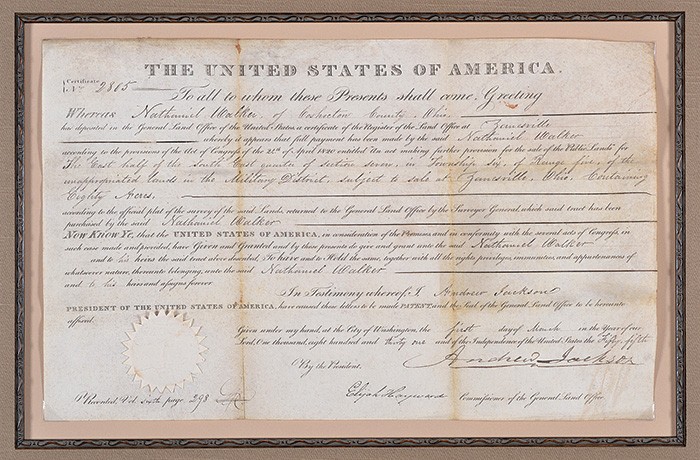 THE UNITED STATES OF AMERICA.
Certificate
No. 2805
To all to whom these Presents shall come, Greeting
WHEREAS Nathaniel Walker, of Coshocton County, Ohio,
has deposited in the General Land Office of the United States a certificate of the Register of the Land Office at Zanesville
whereby it appears that full payment has been made by the said Nathaniel Walker
according to the provisions of the Act of Congress of the 24th of April 1820 entitled "An act making further provision for the sale of the Public Lands" for
The East half of the South East quarter of section seven, in Township six, of Range five, of the
unappropriated lands in the Military District, subject to sale at Zanesville, Ohio, Containing
Eighty Acres,
according to the official plat of the survey of the said Lands, returned to the General Land Office by the Surveyor General, which said tract has been
purchased by the said Nathaniel Walker
Now Know Ye, that the UNITED STATES OF AMERICA, in consideration of the Premises, and in conformity with the several acts of Congress, in
such case made and provided, have Given and Granted and by these presents do give and grant unto the said Nathaniel Walker
and to his heirs the said tract above described: To have and to Hold the same, together with all the rights privileges immunities, and appurtenances of
whatsoever nature, thereunto belonging, unto the said Nathaniel Walker
and to his heirs and assigns forever
In Testimony whereof, I, Andrew Jackson
PRESIDENT OF THE UNITED STATES OF AMERICA, have caused these letters to be made PATENT, and the Seal of the General Land Office to be hereunto
affixed.
Given under my hand, at the City of Washington, the first day of March in the Year of our
Lord, One thousand, eight hundred and thirty one and of the Independence of the United States the Fifty fifth
Andrew Jackson
By the President.
Elijah Hayward Commissioner of the General Land Office
Recorded, Vol. sixth page 298